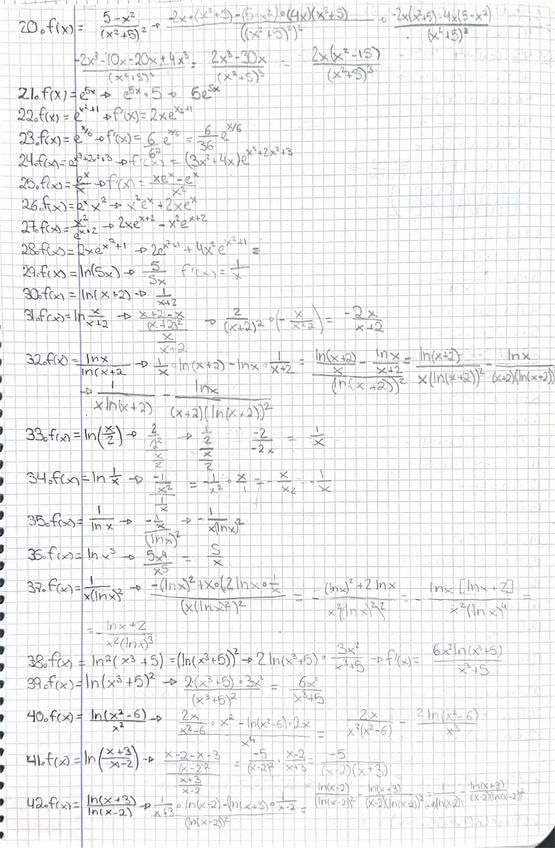 20. f(x) = (5-x²)/(x²+5)² → (-2x·(x²+5)²-(5-x²)·(4x)(x²+5))/((x²+5)²)² → (-2x(x²+5)-4x(5-x²))/(x²+5)³
(-2x³-10x-20x+4x³)/(x²+5)³ = (2x³-30x)/(x²+5)³ = 2x(x²-15)/(x²+5)³
21. f(x) = e^(5x) → e^(5x)·5 →
22. f(x) = e^(x²+1) → f'(x) = 2xe^(x²+1)
23. f(x) = e^(x/6) → f'(x) = 6/6² e^(x/6) = 6/36 e^(x/6)
24. f(x) = e^(x³+2x²+3) → f'(x) = (3x²+4x)e^(x³+2x²+3)
25. f(x) = e^x/x → f'(x) = (xe^x-e^x)/x²
26. f(x) = e^x x² → x²e^x+2xe^x
27. f(x) = x²/e^(x+2) → 2xe^(x+2) - x²e^(x+2)
28. f(x) = 2xe^(x²+1) → 2e^(x²+1) + 4x²e^(x²+1) =
29. f(x) = ln(5x) → 5/5x f'(x) = 1/x
30. f(x) = ln(x+2) → 1/(x+2)
31. f(x) = ln x/(x+2) → ((x+2-x)/(x+2)²)/(x/(x+2)) → 2/(x+2)² · (-x/(x+2)) = -2x/(x+2)
32. f(x) = lnx/ln(x+2 → 1/x · ln(x+2) - lnx · 1/(x+2) = (ln(x+2)/x - lnx/(x+2))/(ln(x+2))² = ln(x+2)/(x(ln(x+2))²) - lnx/((x+2)(ln(x+2))
→ 1/(xln(x+2)) - lnx/((x+2)(ln(x+2))²)
33. f(x) = ln(x/2) → (2/2²)/(x/2) → (1/2)/(x/2) -2/-2x = 1/x
34. f(x) = ln 1/x → (-1/x²)/(1/x) = -1/x² · x/1 = -x/x² -1/x
35. f(x) = 1/ln x → (-1/x)/(lnx)² → -1/x(lnx)²
36. f(x) = lnx⁵ → 5x⁴/x⁵ = 5/x
37. f(x) = 1/(x(lnx)²) → (-(lnx)²+x·(2lnx·1/x))/(x(lnx)²)² = -((lnx)²+2lnx)/(x²(lnx)²)² = -(lnx[lnx+2])/(x²(lnx)⁴) =
= -(lnx+2)/(x²(lnx)³)
38. f(x) = ln²(x³+5) = (ln(x³+5))² → 2ln(x³+5) · 3x²/(x³+5) → f'(x) = 6x²ln(x³+5)/(x³+5)
39. f(x) = ln(x³+5)² → 2(x³+5)·3x²/(x³+5)² = 6x²/(x³+5)
40. f(x) = ln(x²-6)/x² → (2x/(x²-6) · x² - ln(x²-6)·2x)/x⁴ = 2x/(x²(x²-6)) - 2ln(x²-6)/x³
41. f(x) = ln((x+3)/(x-2)) → ((x-2-x+3)/(x-2)²)/((x+3)/(x-2)) = -5/(x-2)² · (x-2)/(x+3) = -5/((x-2)(x+3))
42. f(x) = ln(x+3)/ln(x-2) → (1/(x+3) · ln(x-2) - ln(x+3) · 1/(x-2))/(ln(x-2))² =